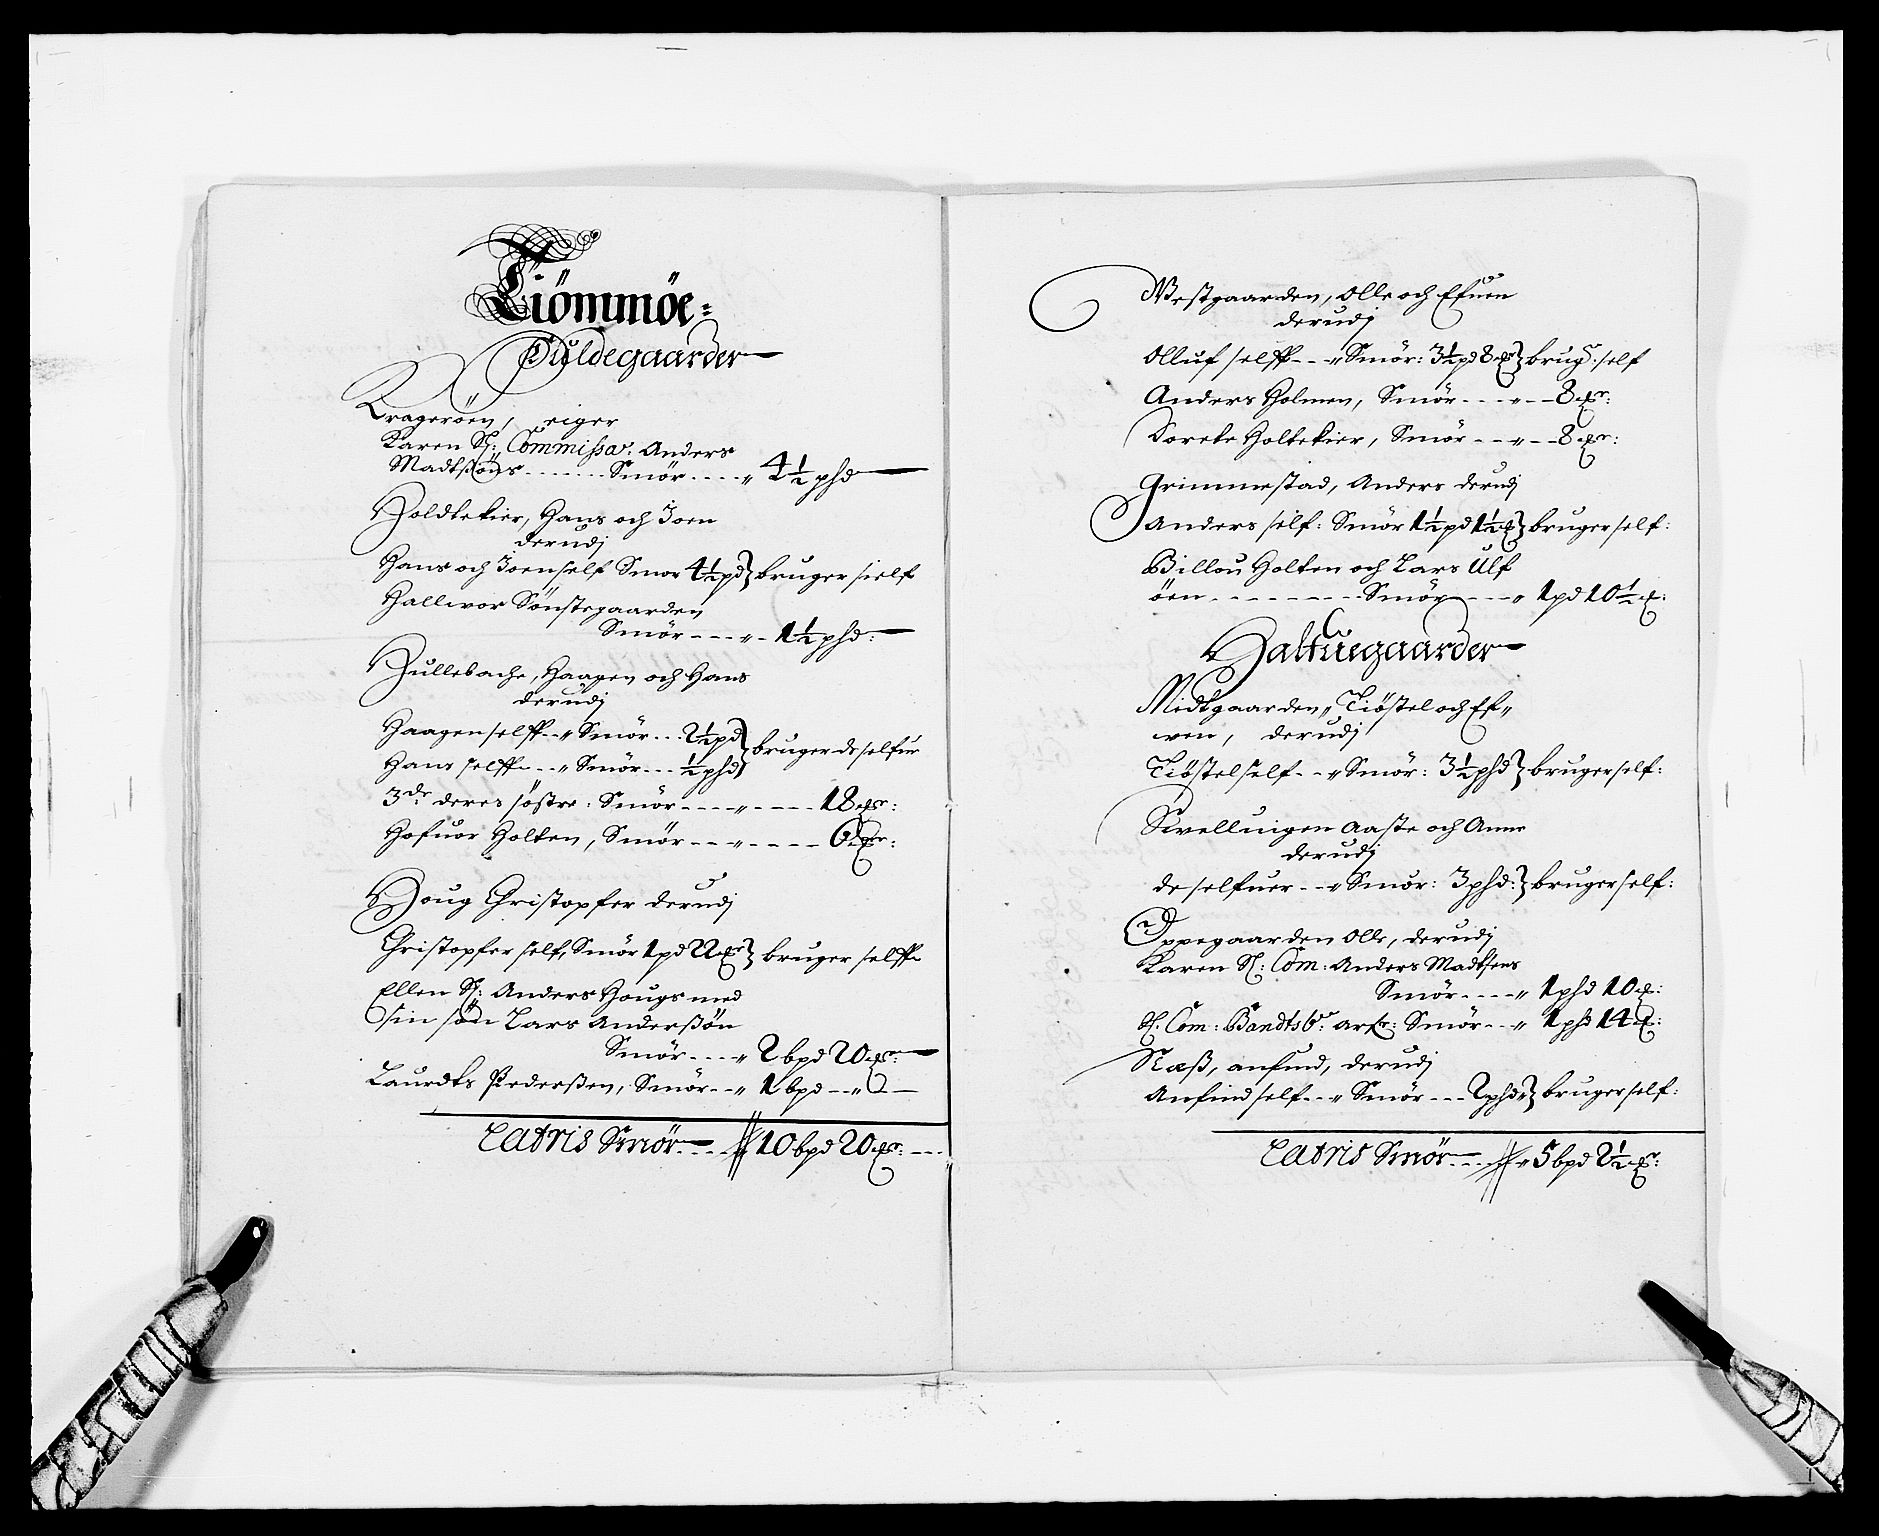 Tiömmöe:
Fuldegaarder
Krageröen, eiger
Karen Sl: Commissar. Anders
Madtsöns ------- Smör ---- „ 4½ phd
Holdtekier, Hans och Joen
derudj
Hans och Joen self Smör 4½ pd } bruger sielf
Hallwor Sönstegaarden
Smör ---- „ - 1½ phd:
Hullebache, Haagen och Hans
derudj
Haagen selff - - „ Smör - - - 2½ pd } bruger de selfuer
Hans selff - - - „ Smör - - - ½ phd
3de deres söstre: Smör ---- „ ---- 18 mr:
Hofuor Holten, Smör --- „ ---- 6 mr:
Houg Christopfer derudj
Christopfer self, Smör 1 pd 22 mr } bruger selff
Ellen Sl: Anders Hougs med
sin sön Lars Anderßön
Smör ---- „ 2 bpd 20 mr:
Laurdts Pederßen, Smör - - „ 1 bpd - - „
Latris Smör - - - - 10 bpd 20 mr: - - -
Westgaarden, Olle och Efuen
derudj
Olluf selff - - - „ Smör: 3½ pd 8 mr } brugr. self
Anders Holmen, Smör - - - - „ - - 8 mr:
Dorete Holtekier, Smör - - - „ - - 8 mr:
Grimmestad, Anders derudj
Anders self: Smör 1½ pd 1½ mr } bruger self:
Billou Holten och Lars Ulf
öen - - - - - - - - - Smör - - - - „ 1 pd 10½ mr:
Halfuegaarder
Midtgaarden „ Tiöstel och Ef „
ven, derudj
Tiöstel self - - - „ Smör: 3½ phd } bruger self:
Swelluigen Aaste och Anne
derudj
de selfuer - - - „ Smör: 3 phd: } bruger self:
Oppegaarden Olle, derudj
Karen Sl: Com: Anders Madtsens
Smör - - - - „ 1 phd 10 mr:
Sl. Com: Bandts arfr: Smör - - „ 1 phd 14 mr:
Næß, anfind, derudj
Anfind self - - - „ Smör - - - 2 phd: } bruger self:
Latris Smör - - - - „ 5 bpd 2½ mr: